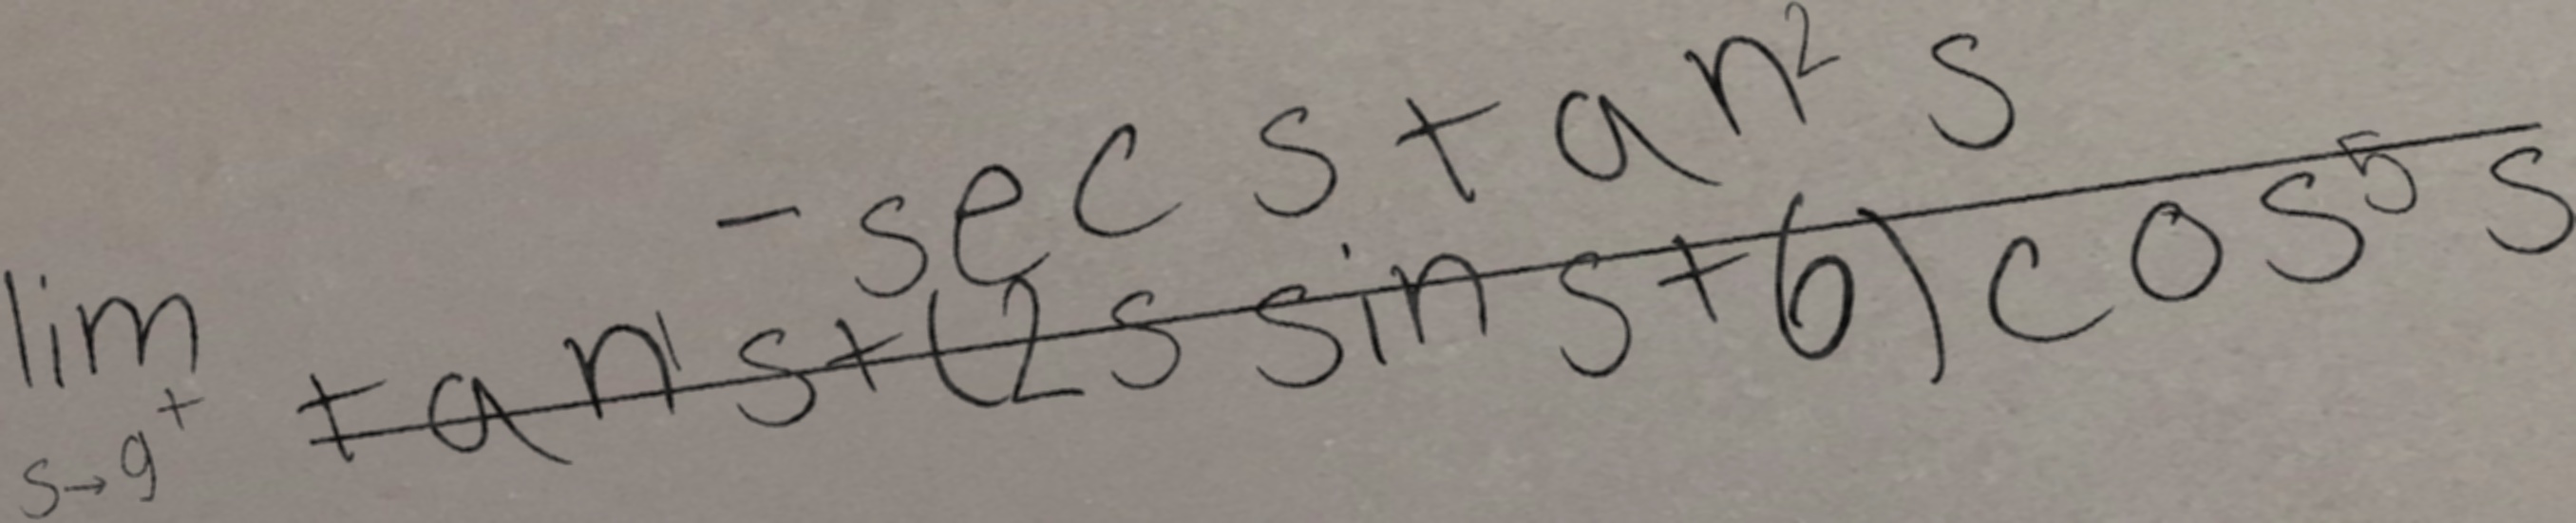 lim s→9⁺ (-sec s tan² s) / (tan¹ s + (2s sin s + 6) cos⁵ s)